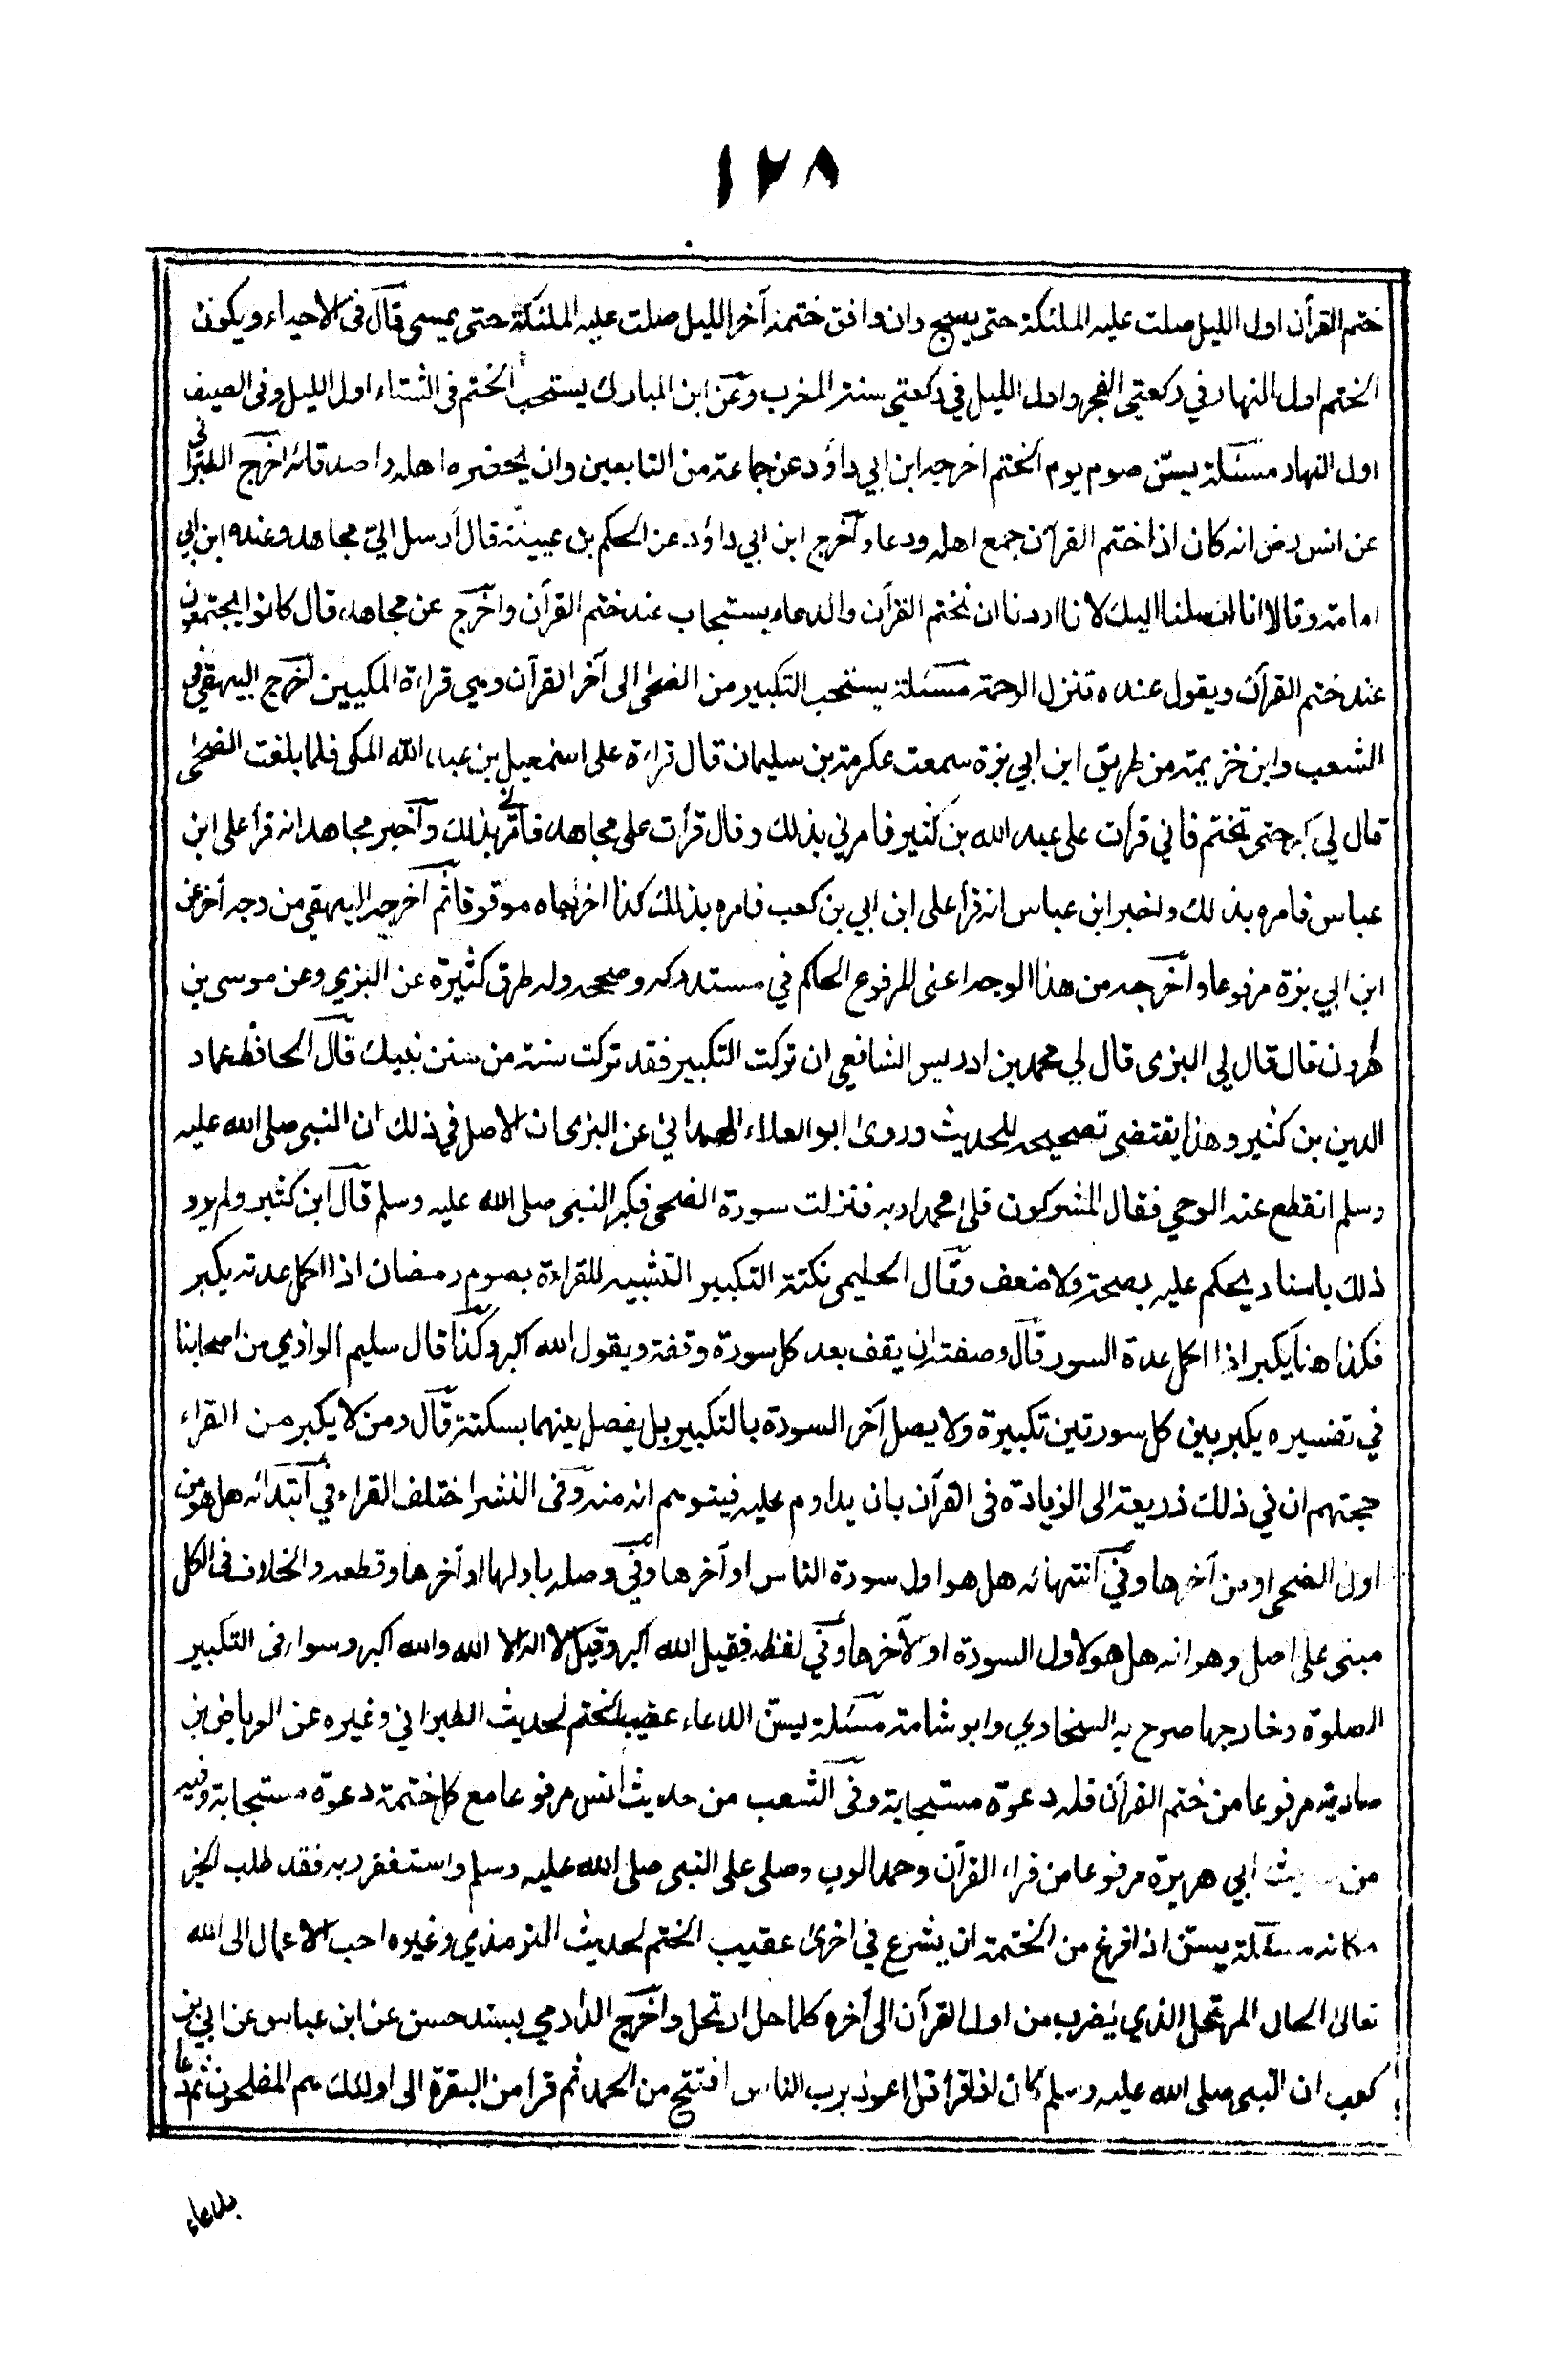 ١٢٨
ختم القرآن اول الليل صلت عليه الملئكة حتى يصبح وان وافق ختمه آخر الليل صلت عليه الملئكة حتى يمسى قال فى الاحياء ويكون
الختم اول النهار في ركعتي الفجر واول الليل في ركعتي سنة المغرب وعن ابن المبارك يستحب الختم فى الشتاء اول الليل وفى الصيف
اول النهار مسئلة يسن صوم يوم الختم اخرجه ابن ابي داؤد عن جماعة من التابعين وان يحضره اهله واصدقائه اخرج الطبرانى
عن انس رض انه كان اذا ختم القرآن جمع اهله ودعا واخرج ابن ابي داؤد عن الحكم بن عيينة قال أرسل اليّ مجاهد وعنده ابن ابي
امامة وقالا انا ارسلنا اليك لانا اردنا ان نختم القرآن والدعاء يستجاب عند ختم القرآن واخرج عن مجاهد قال كانوا يجتمعون
عند ختم القرآن ويقول عنده تنزل الرحمة مسئلة يستحب التكبير من الضحى الى آخر القرآن وهي قراءة المكيين اخرج البيهقي فى
الشعب وابن خزيمة من طريق ابن ابي بزة سمعت عكرمة بن سليمان قال قراءة على اسمعيل بن عبد الله المكى فلما بلغت الضحى
قال لي كبر حتى تختم فاني قرأت على عبد الله بن كثير فامرني بذلك وقال قرأت على مجاهد فامرني بذلك وآخبر مجاهد انه قرأ على ابن
عباس فامره بذلك واخبر ابن عباس انه قرأ على ابن ابي بن كعب فامره بذلك كذا اخرجاه موقوفا ثم اخرجه البيهقي من وجه آخر عن
ابن ابي بزة مرفوعا واخرجه من هذا الوجه اعنى المرفوع الحاكم في مستدركه وصححه وله طرق كثيرة عن البزي وعن موسى بن
هرون قال قال لي البزى قال لي محمد بن ادريس الشافعي ان تركت التكبير فقد تركت سنة من سنن نبيك قال الحافظ عماد
الدين بن كثير وهذا يقتضى تصحيحه للحديث وروى ابو العلاء الهمداني عن البزى ان الاصل في ذلك ان النبى صلى الله عليه
وسلم انقطع عنه الوحي فقال المشركون قلى محمدا ربه فنزلت سورة الضحى فكبر النبى صلى الله عليه وسلم قال ابن كثير ولم يرد
ذلك باسناد يحكم عليه بصحة ولا ضعف وقال الحليمى نكتة التكبير التشبيه للقراءة بصوم رمضان اذا اكمل عدته يكبر
فكذا هنا يكبر اذا اكمل عدة السور قال وصفته ان يقف بعد كل سورة وقفة ويقول الله اكبر وكذا قال سليم الرازي من اصحابنا
في تفسيره يكبر بين كل سورتين تكبيرة ولا يصل آخر السورة بالتكبير بل يفصل بينهما بسكتة قال ومن لا يكبر من القراء
حجتهم ان في ذلك ذريعة الى الزيادة فى القرآن بان يداوم عليه فيتوهم انه منه وفى النشر اختلف القراء في ابتدائه هل هو من
اول الضحى او من آخرها وفي انتهائه هل هو اول سورة الناس او آخرها وفي وصله باولها او آخرها وقطعه والخلاف فى الكل
مبنى على اصل وهو انه هل هو لاول السورة او لآخرها وفي لفظه فقيل الله اكبر وقيل لا اله الا الله والله اكبر وسواء فى التكبير
الصلوة وخارجها صرح به السخاوي وابو شامة مسئلة يسن الدعاء عقيب الختم لحديث الطبراني وغيره عن العرباض بن
سارية مرفوعا من ختم القرآن فله دعوة مستجابة وفى الشعب من حديث انس مرفوعا مع كل ختمة دعوة مستجابة وفيه
من حديث ابي هريرة مرفوعا من قراء القرآن وحمد الرب وصلى على النبى صلى الله عليه وسلم واستغفر ربه فقد طلب الخير
مكانه مسئلة يسن اذا فرغ من الختمة ان يشرع في اخرى عقيب الختم لحديث الترمذي وغيره احب الاعمال الى الله
تعالى الحال المرتحل الذي يضرب من اول القرآن الى آخره كلما حل ارتحل واخرج الدارمي بسند حسن عن ابن عباس عن ابي بن
كعب ان النبى صلى الله عليه وسلم كان اذا قرأ قل اعوذ برب الناس افتتح من الحمد ثم قرا من البقرة الى اولئك هم المفلحون ثم دعا
بدعاء